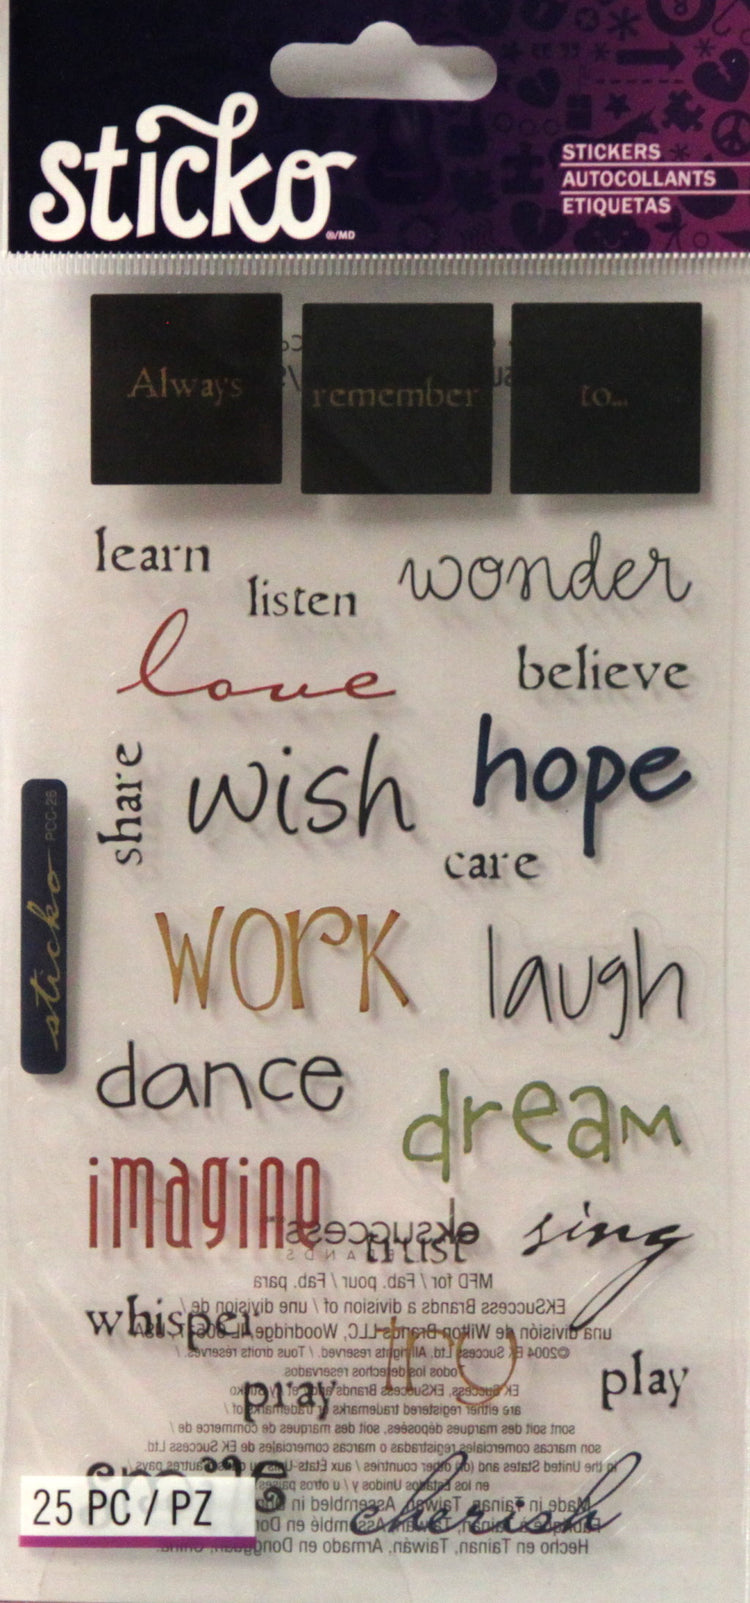 sticko
®/MD
STICKERS
AUTOCOLLANTS
ETIQUETAS
Always
remember
to...
learn
listen
wonder
love
believe
share
wish
hope
care
sticko PCC-26
work
laugh
dance
dream
imagine
eksuccess
BRANDS
trust
sing
MFD for / Fab. pour / Fab. para
EKSuccess Brands a division of / une division de /
whisper
una división de Wilton Brands LLC, Woodridge, IL 60517 USA
©2004 EK Success Ltd. All rights reserved. / Tous droits réservés. /
Todos los derechos reservados
try
play
pray
EK Success, EKSuccess Brands and/ et /y Sticko
are either registered trademarks or trademarks of /
sont soit des marques déposées, soit des marques de commerce de /
son marcas comerciales registradas o marcas comerciales de EK Success Ltd.
in the United States and (or) other countries / aux États-Unis ou d'autres pays /
en los Estados Unidos y / u otros países
25 PC / PZ
cherish
Made in Tainan, Taiwan, Assembled in
Fabriqué à Tainan, Taiwan, Assemblé en
Hecho en Tainan, Taiwán, Armado en Dongguan, China.